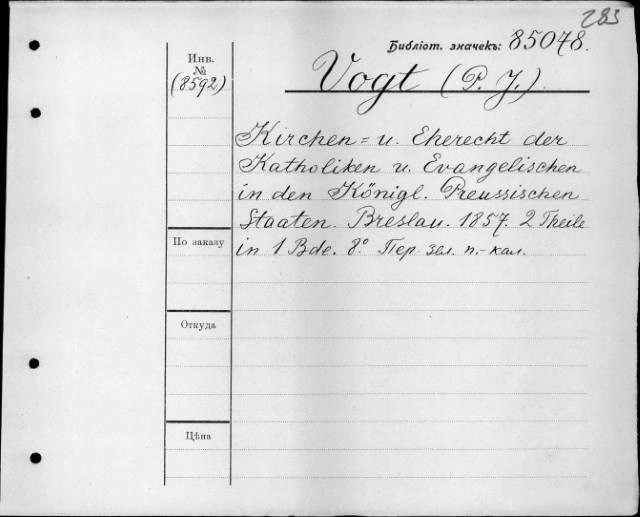 283
Библіот. значекъ: 85078.
Инв.
№
(8592)
Vogt (P. J.)
Kirchen= u. Eherecht der
Katholiken u. Evangelischen
in den Königl. Preussischen
Staaten. Breslau. 1857. 2 Theile
in 1 Bde. 8º Пер. зел. п.-кал.
По заказу
Откуда
Цѣна